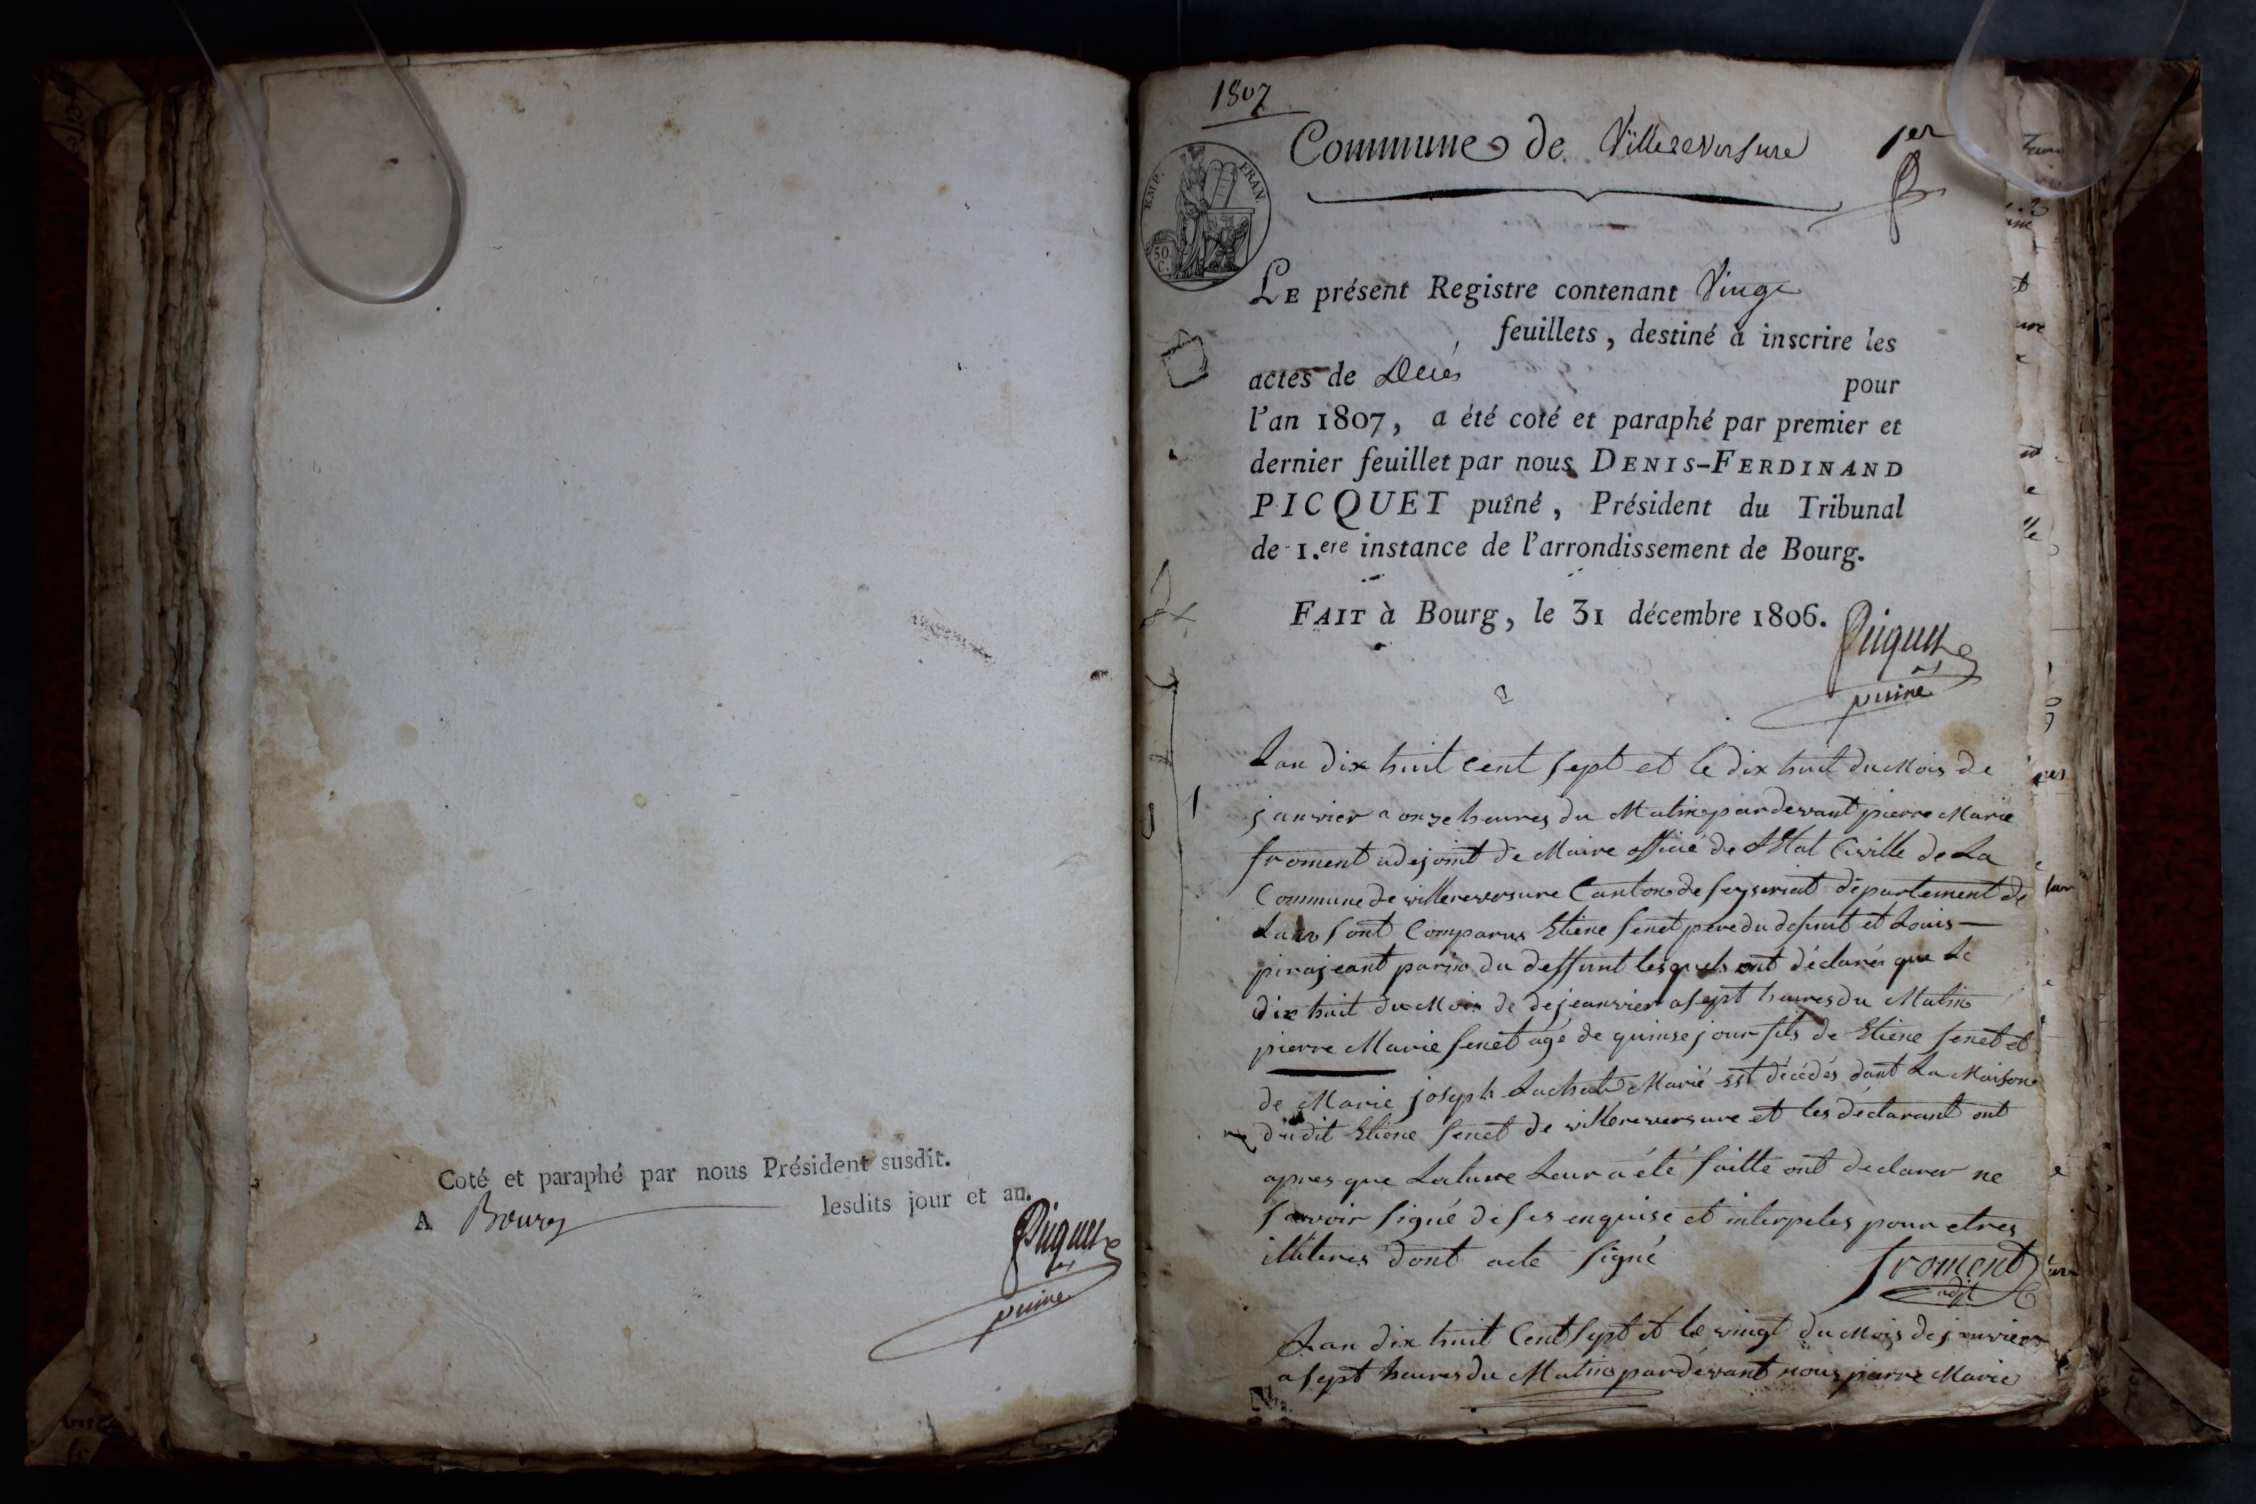 Coté et paraphé par nous Président susdit.
A Bourg lesdits jour et an.
Picquet
puiné
1807
Commune de Villereversure 1er
EMP. FRAN.
50 C.
LE présent Registre contenant Vingt
feuillets, destiné à inscrire les
actes de Décés pour
l'an 1807, a été coté et paraphé par premier et
dernier feuillet par nous DENIS-FERDINAND
PICQUET puîné, Président du Tribunal
de 1.ere instance de l'arrondissement de Bourg.
FAIT à Bourg, le 31 décembre 1806.
Picquet
puiné
1
Lan dix huit Cent sept et le dix huit du Mois de
janvier a onze heures du Matin pardevant pierre Marie
froment adejoint de Maire officié de LEtat Civille de La
Commune de villereversure Canton de seyseriat département de
Lain sont Comparus Etiene senet pere du defunt et Louis
pirajeant parin du deffunt lesquels ont déclarés que Le
dix huit du Mois de dejeanvier a sept heures du Matin
pierre Marie senet agé de quinse jour fils de Etiene senet et
de Marie joseph Lachat Marié est décédés dant La Maison
dudit Etiene senet de villereversure et les déclarant ont
apres que Lature Leur a été faitte ont declarer ne
savoir signé de ses enquise et interpeles pour etres
illiteres dont acte signé
froment
adjt
Lan dix huit Cent sept et le vingt du Mois de janvier
a sept heures du Matin pardevant nous pierre Marie